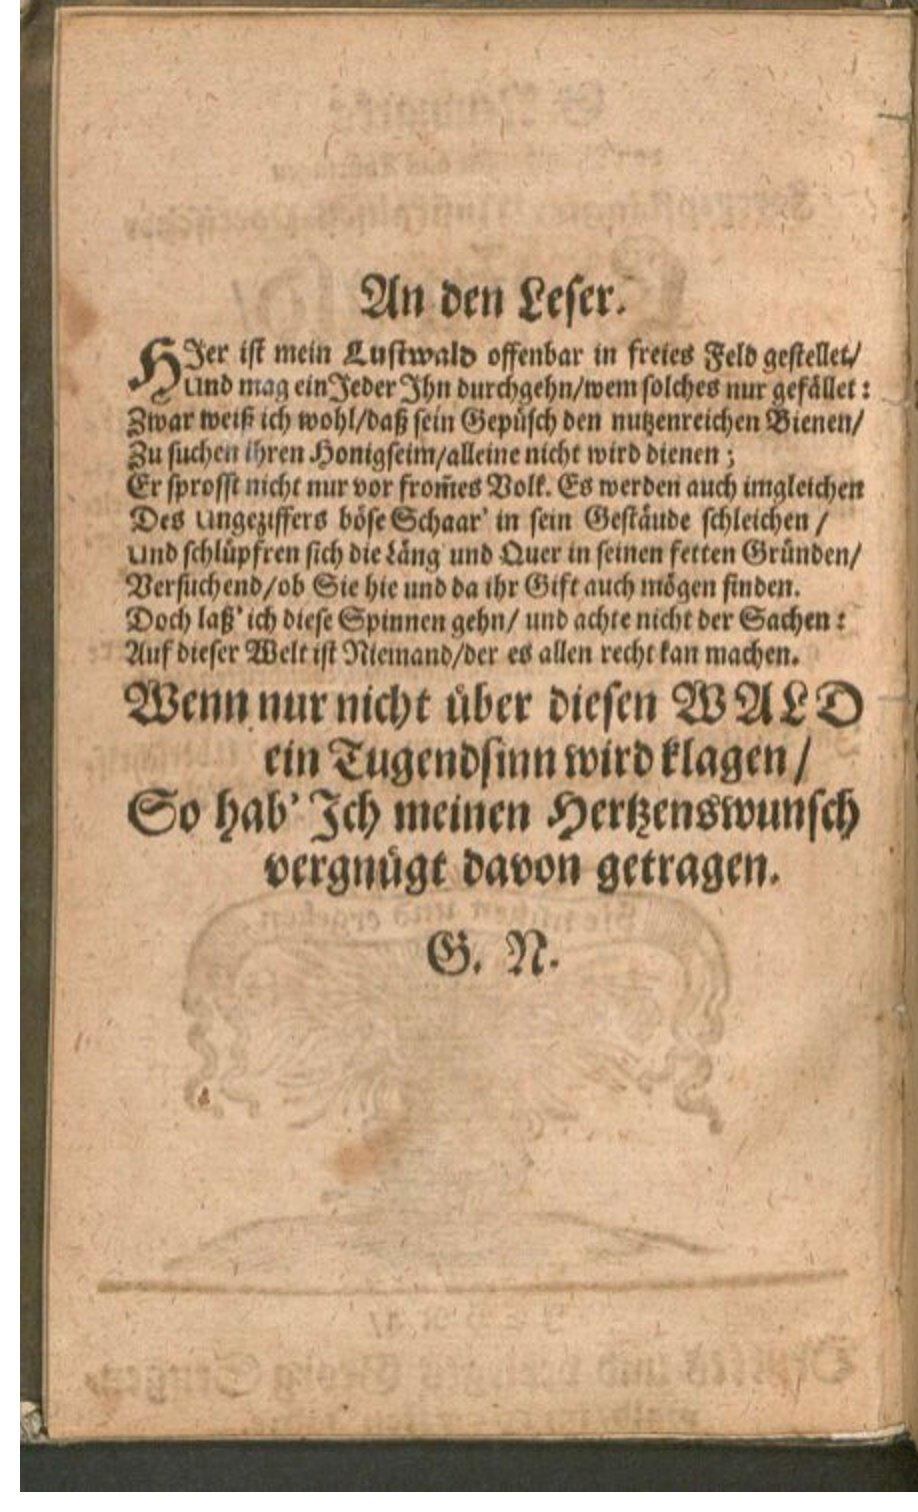 An den Leser.
HJer ist mein Lustwald offenbar in freies Feld gestellet/
Und mag ein Jeder Jhn durchgehn/wem solches nur gefället:
Zwar weiß ich wohl/daß sein Gepüsch den nutzenreichen Bienen/
Zu suchen ihren Honigseim/alleine nicht wird dienen;
Er sprosst nicht nur vor from̃es Volk. Es werden auch imgleichen
Des Ungeziffers böse Schaar' in sein Gestäude schleichen/
Und schlüpfren sich die Läng und Quer in seinen fetten Gründen/
Versuchend/ob Sie hie und da ihr Gift auch mögen finden.
Doch laß' ich diese Spinnen gehn/ und achte nicht der Sachen:
Auf dieser Welt ist Niemand/der es allen recht kan machen.
Wenn nur nicht über diesen WALD
ein Tugendsinn wird klagen/
So hab' Jch meinen Hertzenswunsch
vergnügt davon getragen.
G. N.